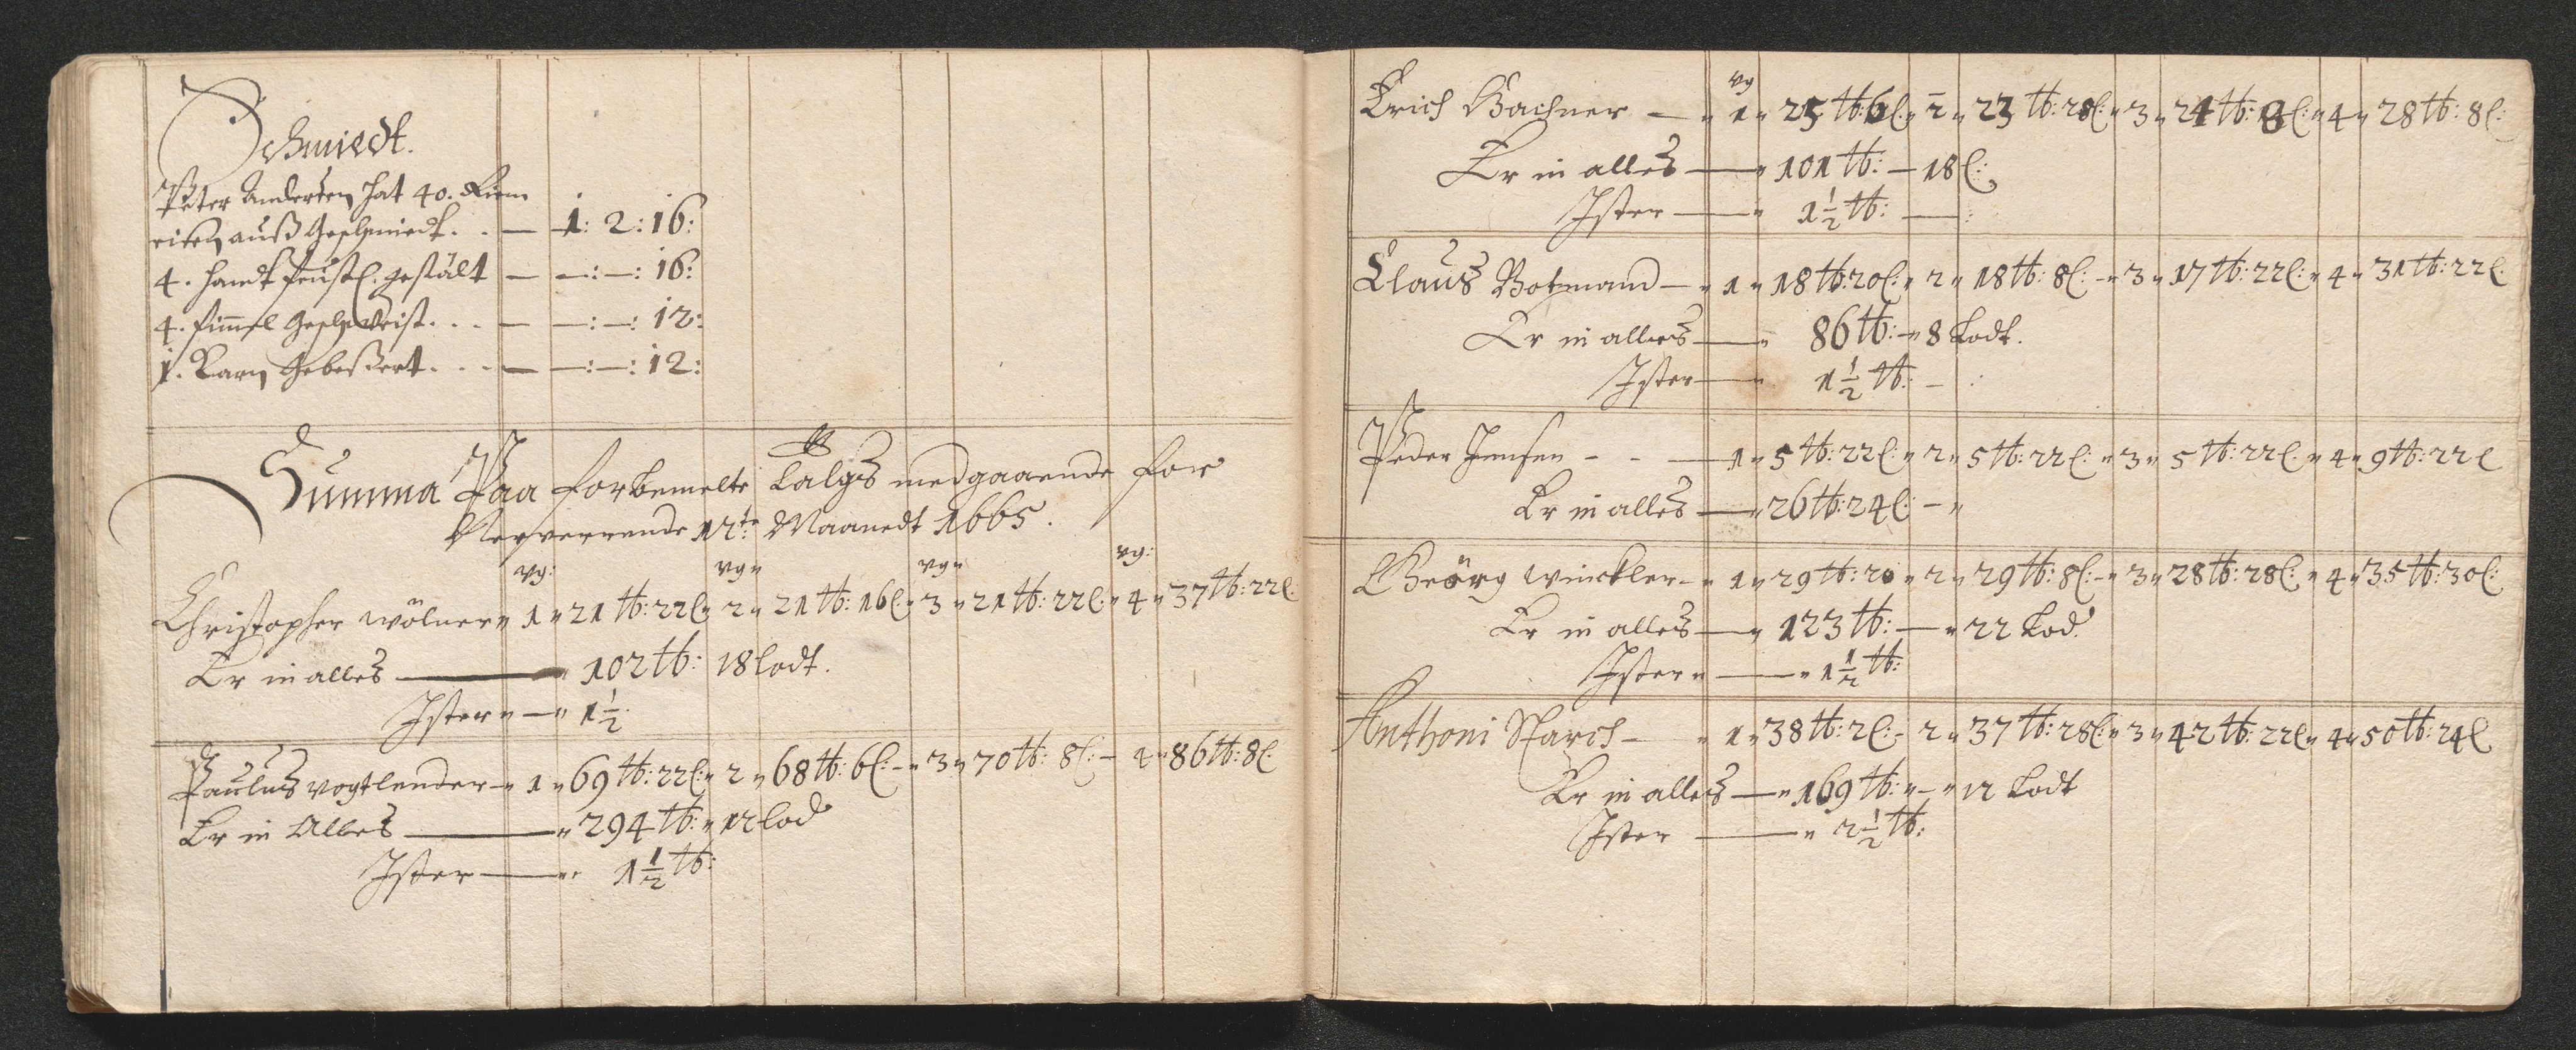 Schmiedt.
Peter Andersen hat 40. Riem
eisen auß Geschmiedt. . — 1: 2: 16:
4. handt feüstl. gestält — —:—: 16:
4. fimmel Geschweist. . . — —:—: 12:
1. Karn Gebeßert. . . — —:—: 12:
Summa Paa forbemelte Talgs medgaaende for
Nerverrende 12te Maanedt 1665.
vg: vg" vg" vg:
Christopher Wölner" 1" 21 tb: 22l" 2" 21 tb: 16l:" 3" 21 tb: 22l:" 4" 37 tb: 22l:
Er in alles — 102 tb: 18 lodt.
Ister" —" 1 1/2
Paulus Vogtlender —" 1" 69 tb: 22l:" 2" 68 tb: 6l: —" 3" 70 tb: 8l: — 4" 86 tb: 8l:
Er in Alles —" 294 tb:" 12 lod
Ister —" 1 1/2 tb:
vg
Erich Bachner —" 1" 25 tb: 6l:" 2" 23 tb: 28l:" 3" 24 tb: 8l:" 4" 28 tb: 8l:
Er in alles —" 101 tb: — 18l:
Ister —" 1 1/2 tb: —:
Claus Botmand —" 1" 18 tb: 20l:" 2" 18 tb: 8l: —" 3" 17 tb: 22l:" 4" 31 tb: 22l:
Er in alles —" 86 tb: —" 8 Lodt.
Ister —" 1 1/2 tb: — :
Peder Jensen - - — 1" 5 tb: 22l:" 2" 5 tb: 22l:" 3" 5 tb: 22l" 4" 9 tb: 22l
Er in alles —" 26 tb: 24l: —"
Geörg Winckler —" 1" 29 tb: 20" 2" 29 tb: 8l: —" 3" 28 tb: 28l:" 4" 35 tb: 30l:
Er in alles —" 123 tb: —" 22 Lod.
Ister" —" 1 1/2 tb:
Anthoni Starch — " 1" 38 tb: 2l: — 2" 37 tb: 28l:" 3" 42 tb: 22l" 4" 50 tb: 24l
Er in alles —" 169 tb:" —" 12 Lodt
Ister —" 2 1/2 tb: